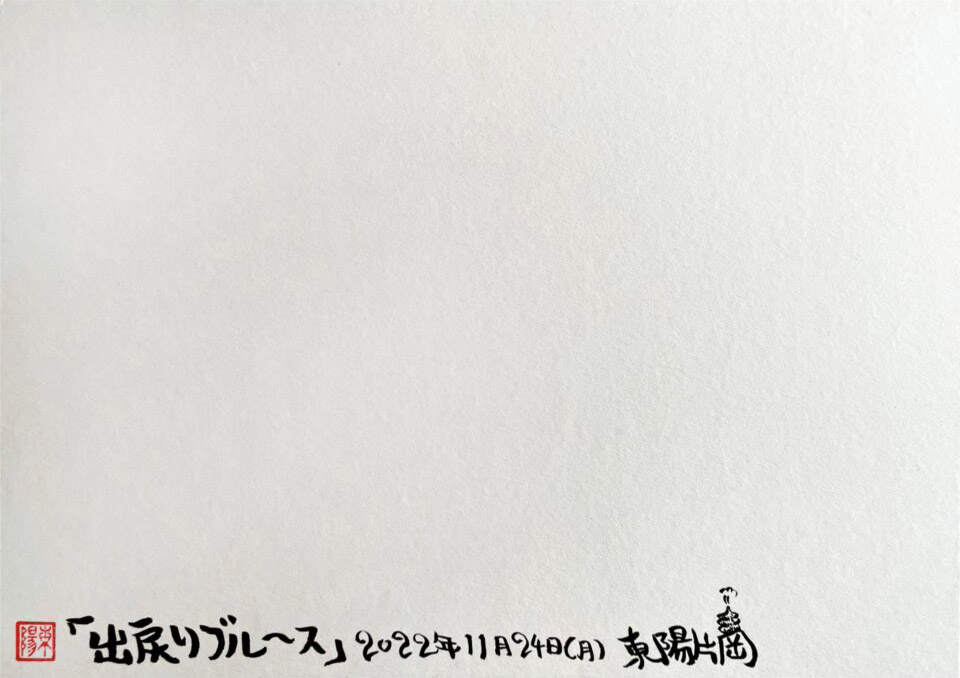 「出戻りブルース」2022年11月24日(月) 東陽片岡
東陽